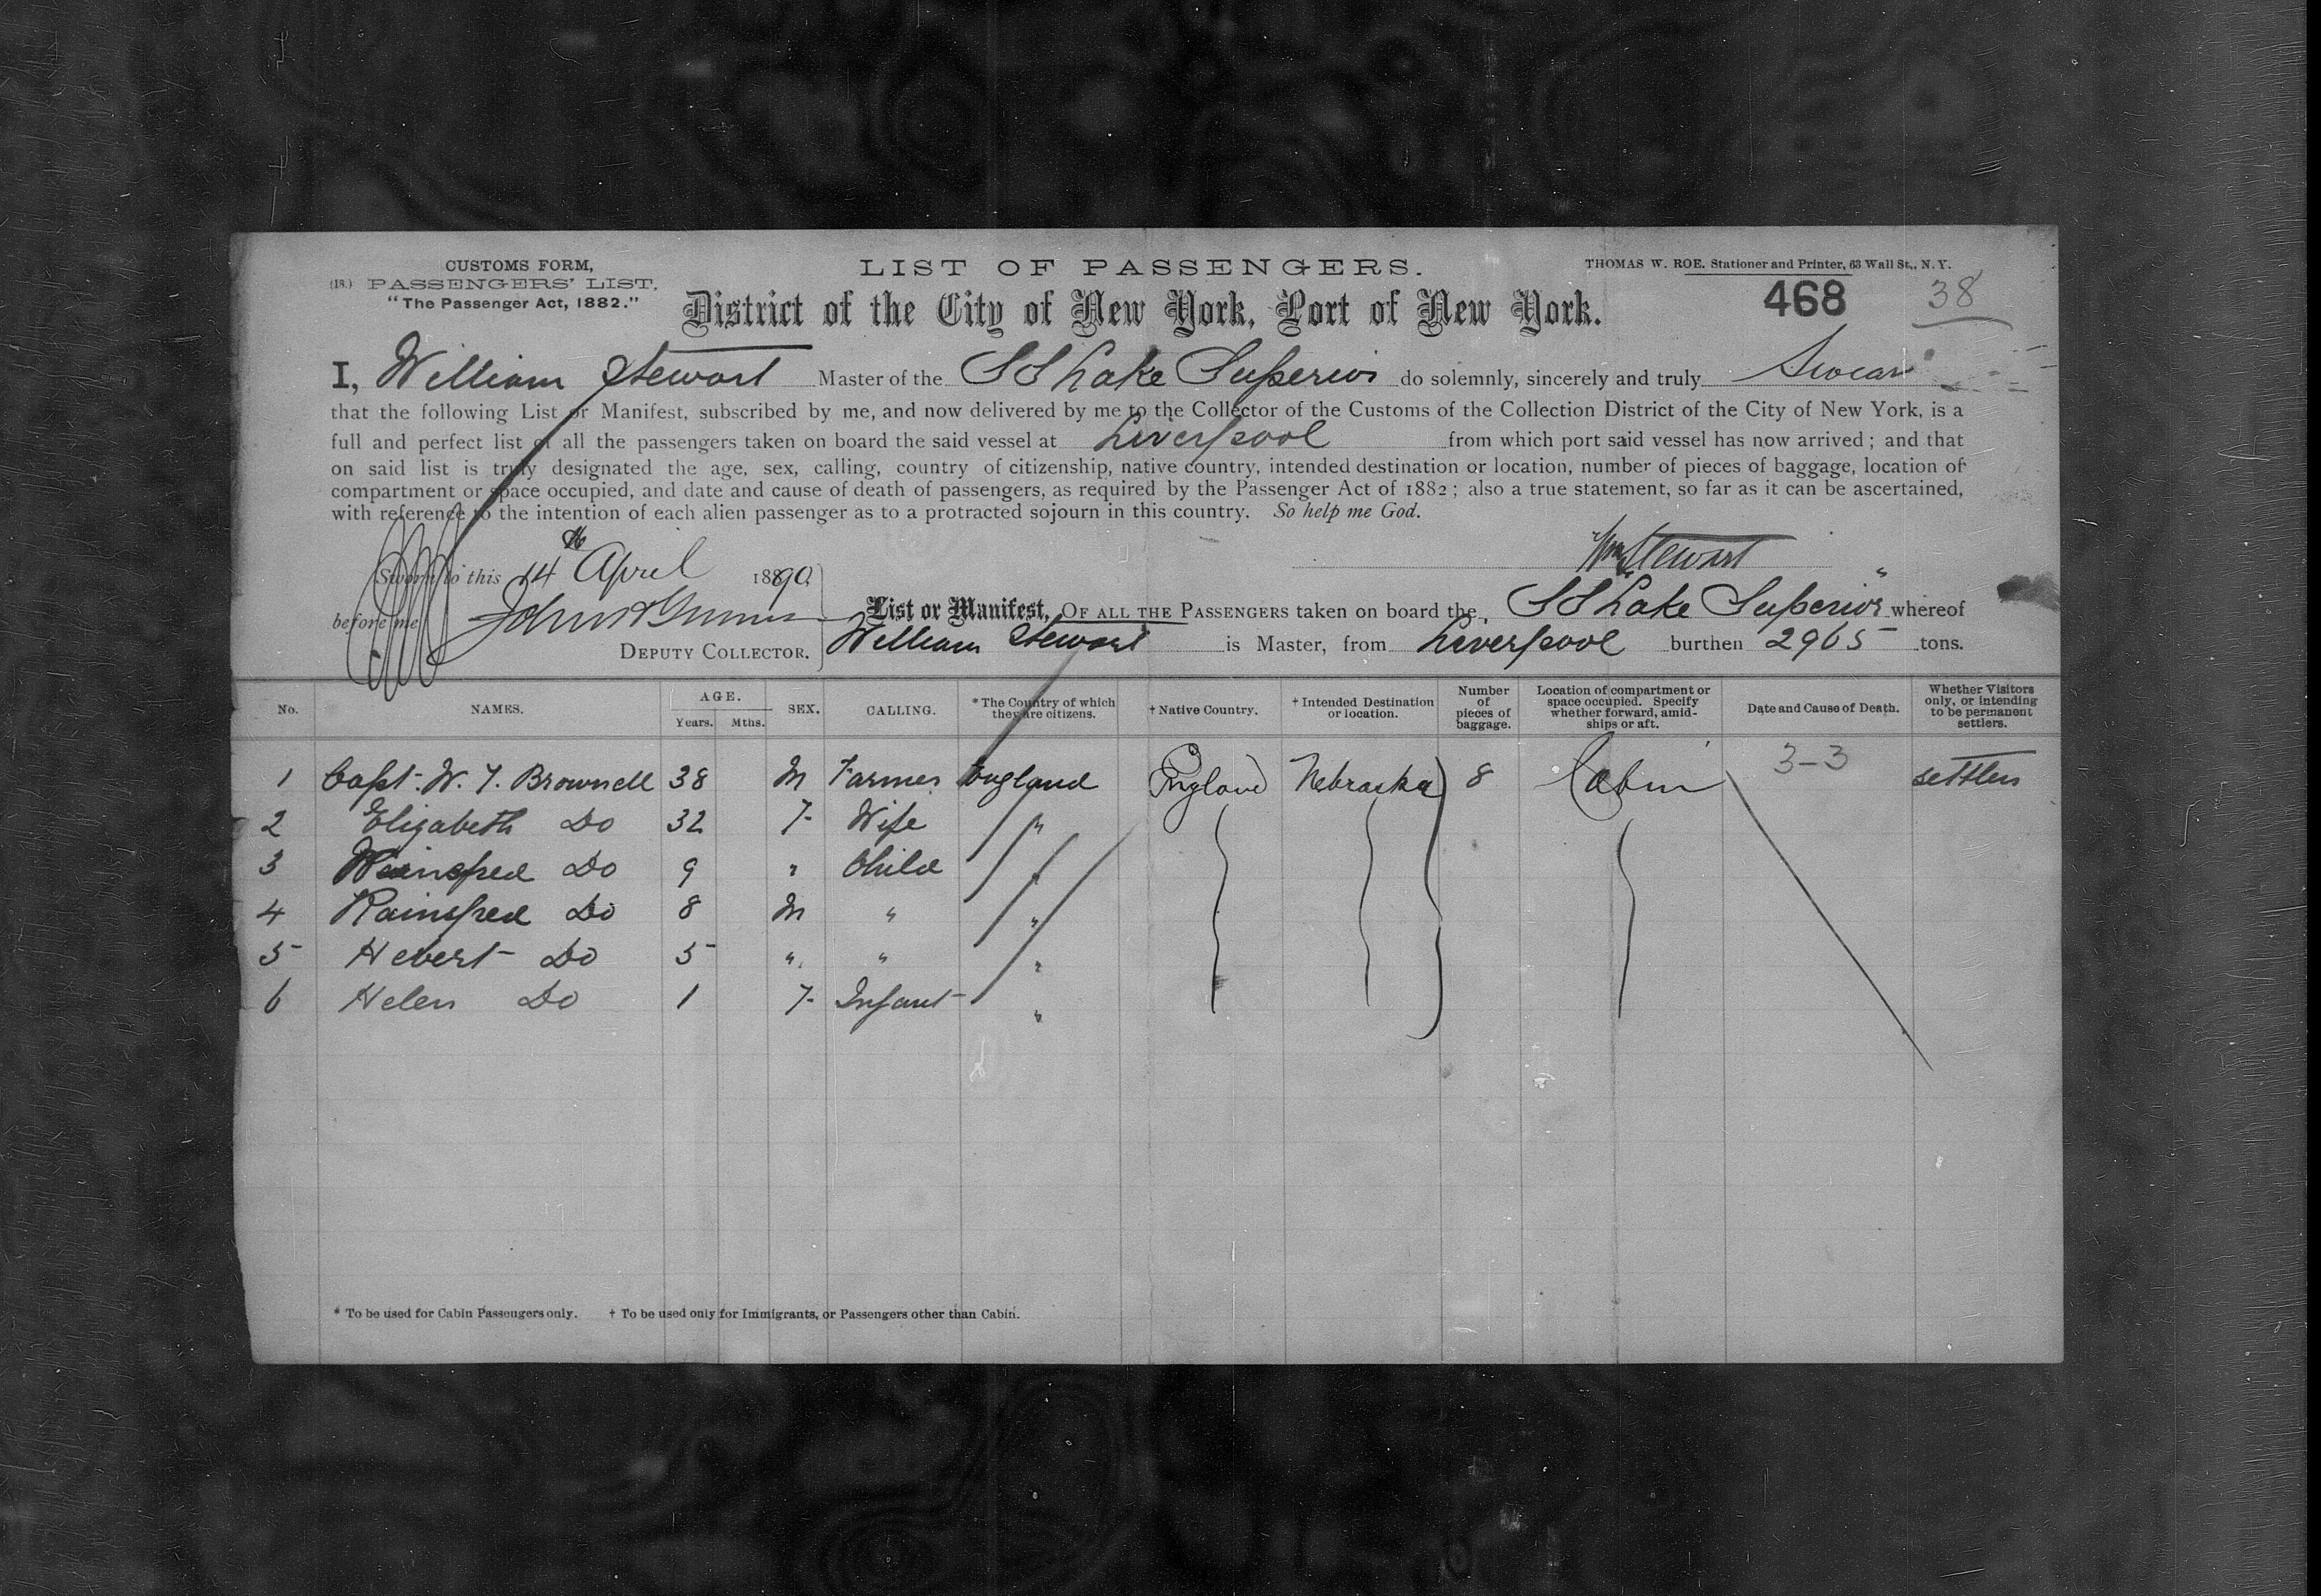 CUSTOMS FORM,
(18.) PASSENGERS' LIST,
"The Passenger Act, 1882."
LIST OF PASSENGERS.
THOMAS W. ROE. Stationer and Printer, 63 Wall St., N. Y.
District of the City of New York, Port of New York.
468 38
I, William Stewart Master of the SS Lake Superior do solemnly, sincerely and truly Swear
that the following List or Manifest, subscribed by me, and now delivered by me to the Collector of the Customs of the Collection District of the City of New York, is a
full and perfect list of all the passengers taken on board the said vessel at Liverpool from which port said vessel has now arrived; and that
on said list is truly designated the age, sex, calling, country of citizenship, native country, intended destination or location, number of pieces of baggage, location of
compartment or space occupied, and date and cause of death of passengers, as required by the Passenger Act of 1882; also a true statement, so far as it can be ascertained,
with reference to the intention of each alien passenger as to a protracted sojourn in this country. So help me God.
Wm Stewart
Sworn to this 14th April 1890
before me John
DEPUTY COLLECTOR.
List or Manifest, OF ALL THE PASSENGERS taken on board the SS Lake Superior whereof
William Stewart is Master, from Liverpool burthen 2965 tons.
No. NAMES. AGE. Years. Mths. SEX. CALLING. * The Country of which they are citizens. † Native Country. † Intended Destination or location. Number of pieces of baggage. Location of compartment or space occupied. Specify whether forward, amidships or aft. Date and Cause of Death. Whether Visitors only, or intending to be permanent settlers.
1 Capt. W. T. Brownell 38 M Farmer England England Nebraska 8 Cabin 3-3 settlers
2 Elizabeth Do 32 F Wife "
3 Do 9 " Child "
4 Rainsfred Do 8 M " "
5 Hebert Do 5 " " "
6 Helen Do 1 F Infant "
* To be used for Cabin Passengers only. † To be used only for Immigrants, or Passengers other than Cabin.